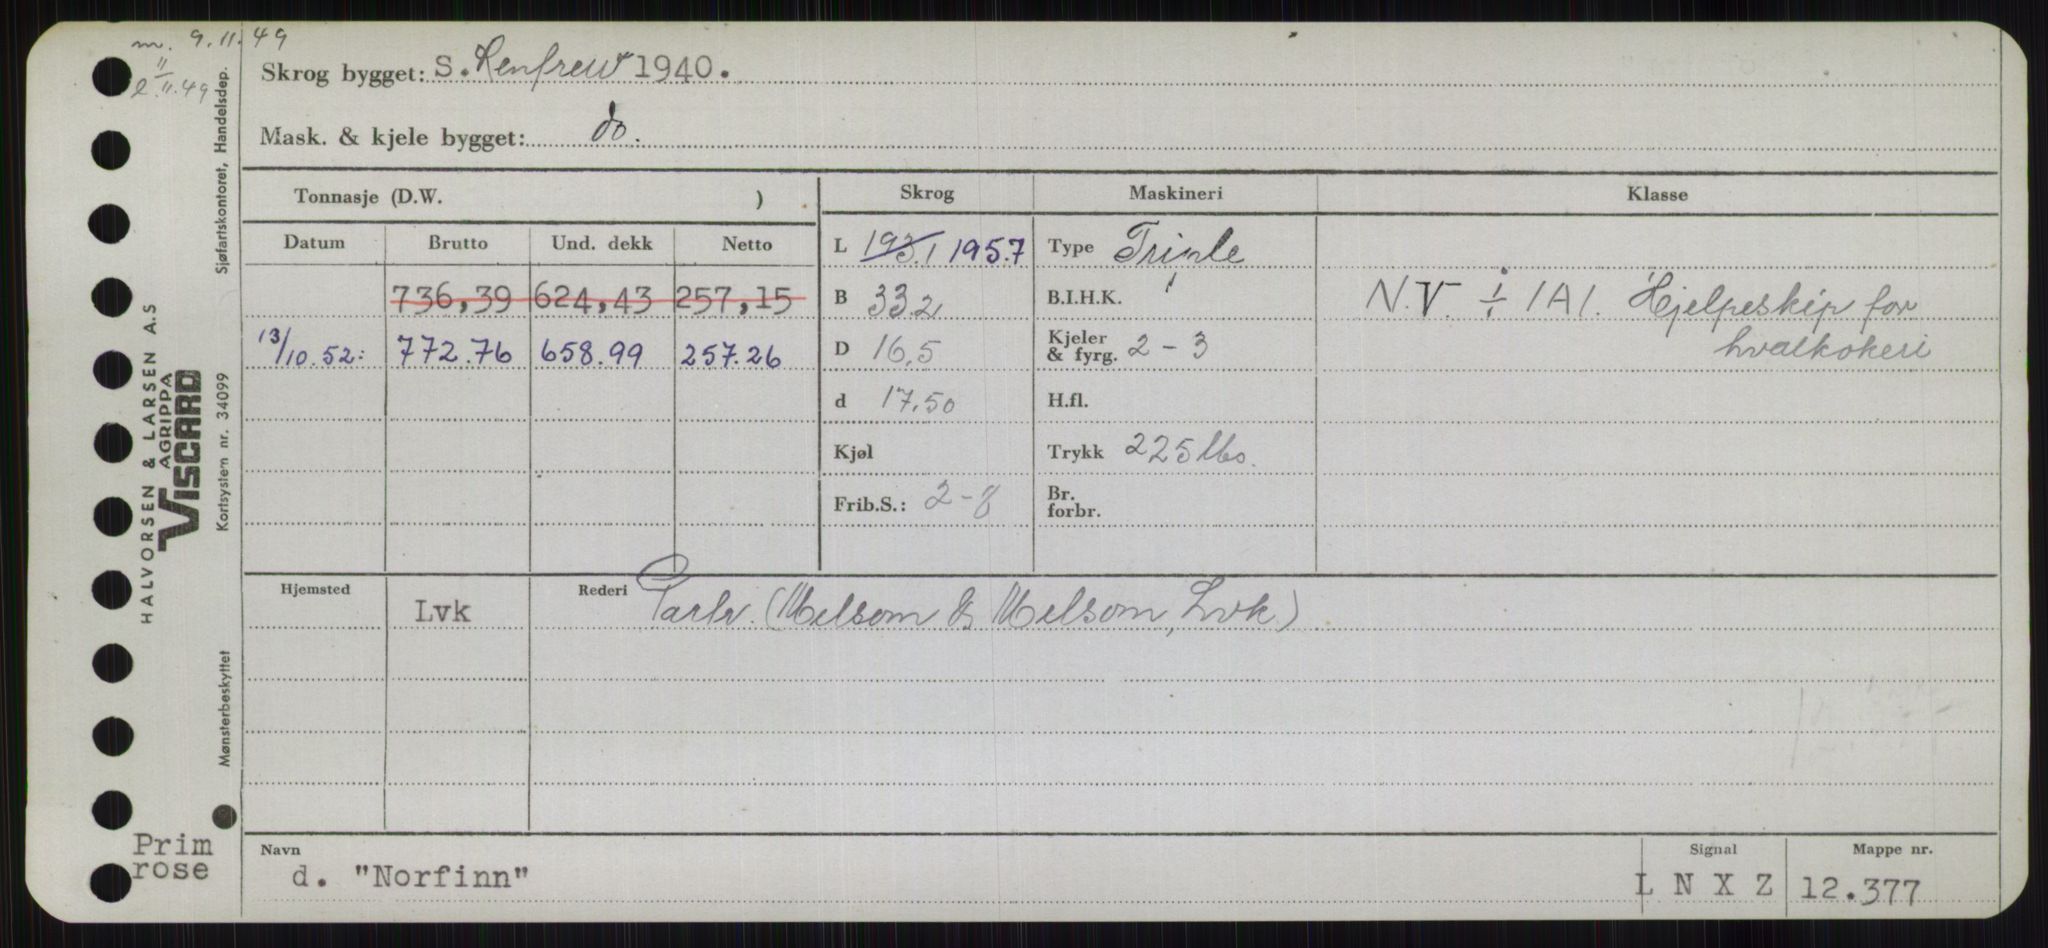 m. 9.11.49
l 11/11.49
Skrog bygget: S. Renfrew 1940.
Mask. & kjele bygget: do.
Tonnasje (D.W. ) Skrog Maskineri Klasse
Datum Brutto Und. dekk Netto
L 193.1 195.7 Type Triple
736,39 624,43 257,15 B 33.2 B.I.H.K. N.V. ÷ 1A1. Hjelpeskip for
hvalkokeri
13/10.52: 772.76 658.99 257.26 D 16.5 Kjeler & fyrg. 2-3
d 17.50 H.fl.
Kjøl Trykk 225 lbs.
Frib.S.: 2-8 Br. forbr.
Hjemsted Lvk Rederi Partr. (Melsom & Melsom, Lvk)
Navn Signal Mappe nr.
d. "Norfinn" L N X Z 12.377
Prim
rose
Sjøfartskontoret, Handelsdep.
HALVORSEN & LARSEN A.S
AGRIPPA
VISCARD
Kortsystem nr. 34099
Mønsterbeskyttet